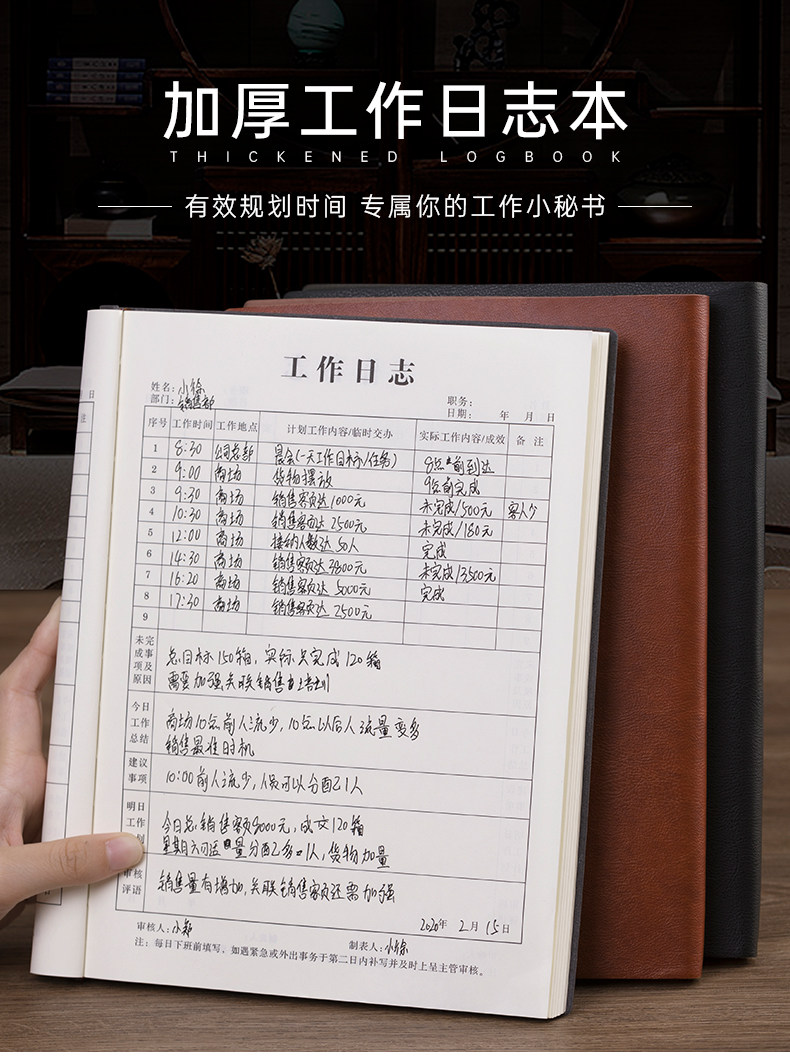 加厚工作日志本
THICKENED LOGBOOK
有效规划时间 专属你的工作小秘书
工作日志
姓名：小徐 职务：
部门：销售部 日期： 年 月 日
序号 工作时间 工作地点 计划工作内容/临时交办 实际工作内容/成效 备 注
1 8:30 公司总部 晨会(一天工作目标/任务) 8点前到达
2 9:00 商场 货物摆放 9点前完成
3 9:30 商场 销售客额达1000元 未完成/500元 客人少
4 10:30 商场 销售客额达2500元 未完成/180元
5 12:00 商场 接纳人数达50人 完成
6 14:30 商场 销售客额达3800元 未完成/3500元
7 16:20 商场 销售客额达5000元 完成
8 17:30 商场 销售客额达2500元
9
未完成事项及原因
总目标150箱，实际只完成120箱
需要加强关联销售培训
今日工作总结
商场10点前人流少，10点以后人流量变多
销售最佳时机
建议事项
10:00前人流少，人员可以分配1人
明日工作划
今日总销售客额8000元，成交120箱
星期六可适量分配多1人，货物加量
审核评语
销售量有增加，关联销售客额还需加强
2020年2月15日
审核人：小郑 制表人：小徐
注：每日下班前填写、如遇紧急或外出事务于第二日内补写并及时上呈主管审核。